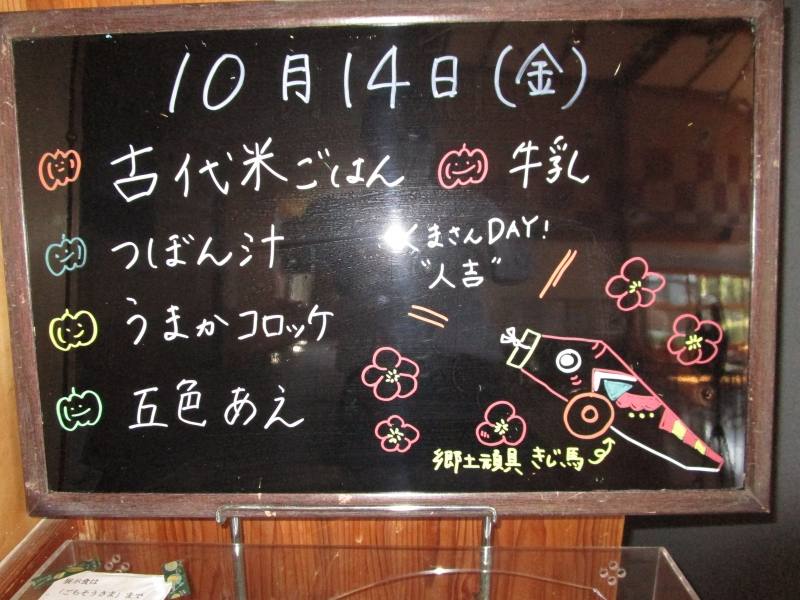 10月14日(金)
古代米ごはん 牛乳
つぼん汁
くまさんDAY!
"人吉"
うまかコロッケ
五色あえ
郷土頑具 きじ馬
展示食は
「ごちそうさま」まで